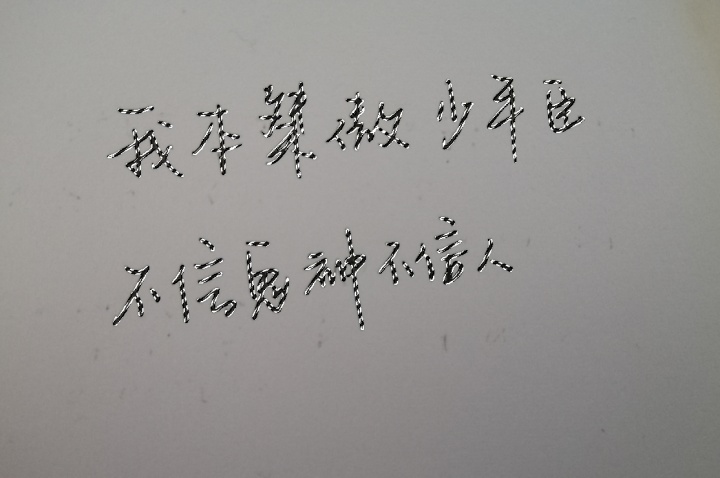 我本桀傲少年臣
不信鬼神不信人